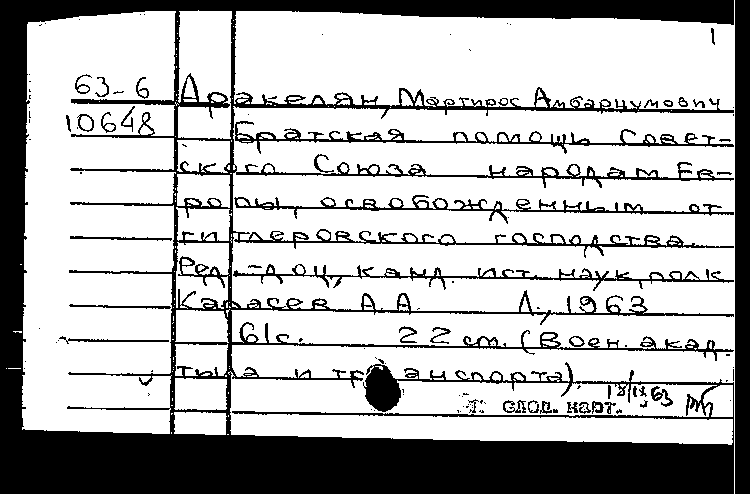 1
63-6 Аракелян, Мартирос Амбарцумович
10648 Братская помощь Совет-
ского Союза народам Ев-
ропы, освобожденным от
гитлеровского господства.
Ред.-доц, канд. ист. наук, полк
Карасев А.А. Л., 1963
61с. 22 см. (Воен. акад.
тыла и транспорта).
след. карт.